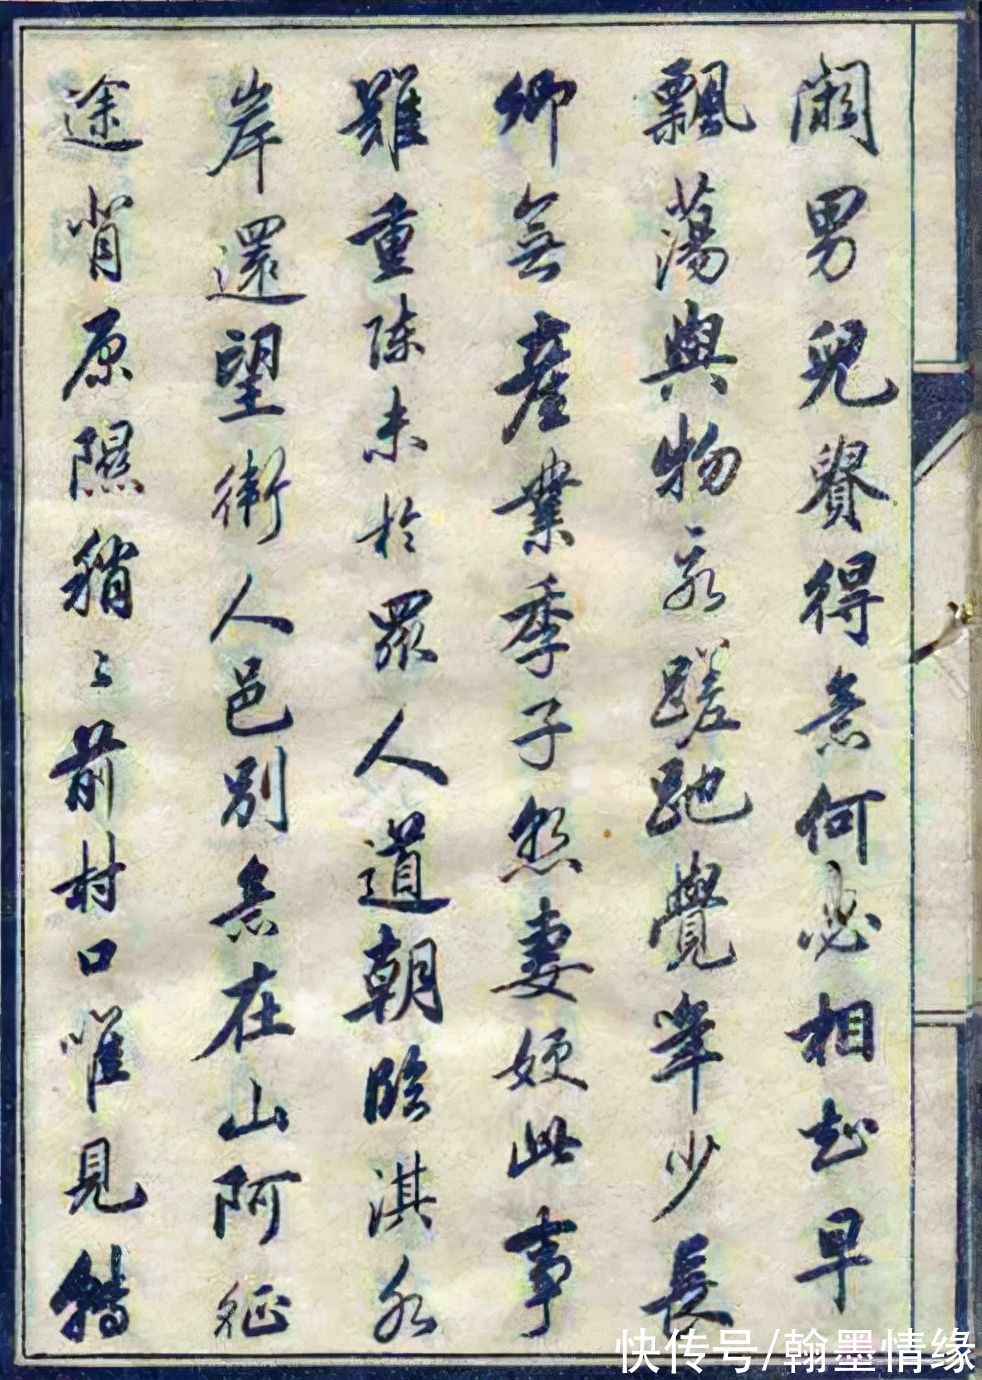 闊男兒貴得意何必相知早
飄蕩與物永蹉跎覺年少長
卿無產業季子慙妻嫂此事
難重陳未於眾人道朝臨淇水
岸還望衛人邑別意在山阿征
途背原隰稍〻前村口唯見轉
快传号/翰墨情缘